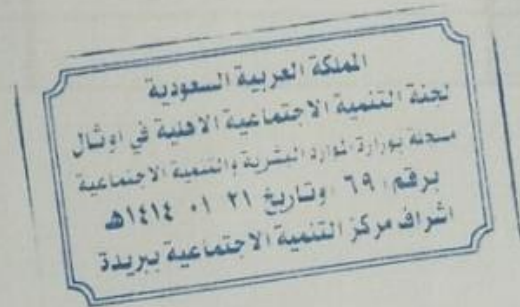 المملكة العربية السعودية
لجنة التنمية الاجتماعية الاهلية في اوثال
مسجلة بوزارة الموارد البشرية والتنمية الاجتماعية
برقم ٦٩ وتاريخ ٢١ ٠١ ١٤١٤هـ
اشراف مركز التنمية الاجتماعية ببريدة